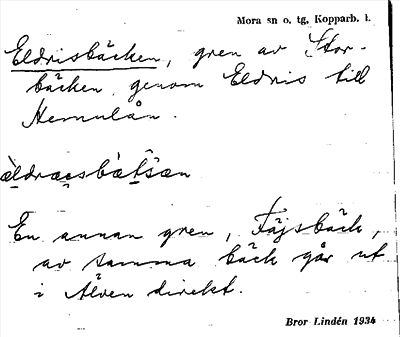 Mora sn o. tg, Kopparb. l.
Eldrisbäcken, gren av Stor-
bäcken genom Eldris till
Hemulån.
ældræ̣sbàt̂šan
En annan gren, Fäjsbäck,
av samma bäck går ut
i Älven direkt.
Bror Lindén 1934